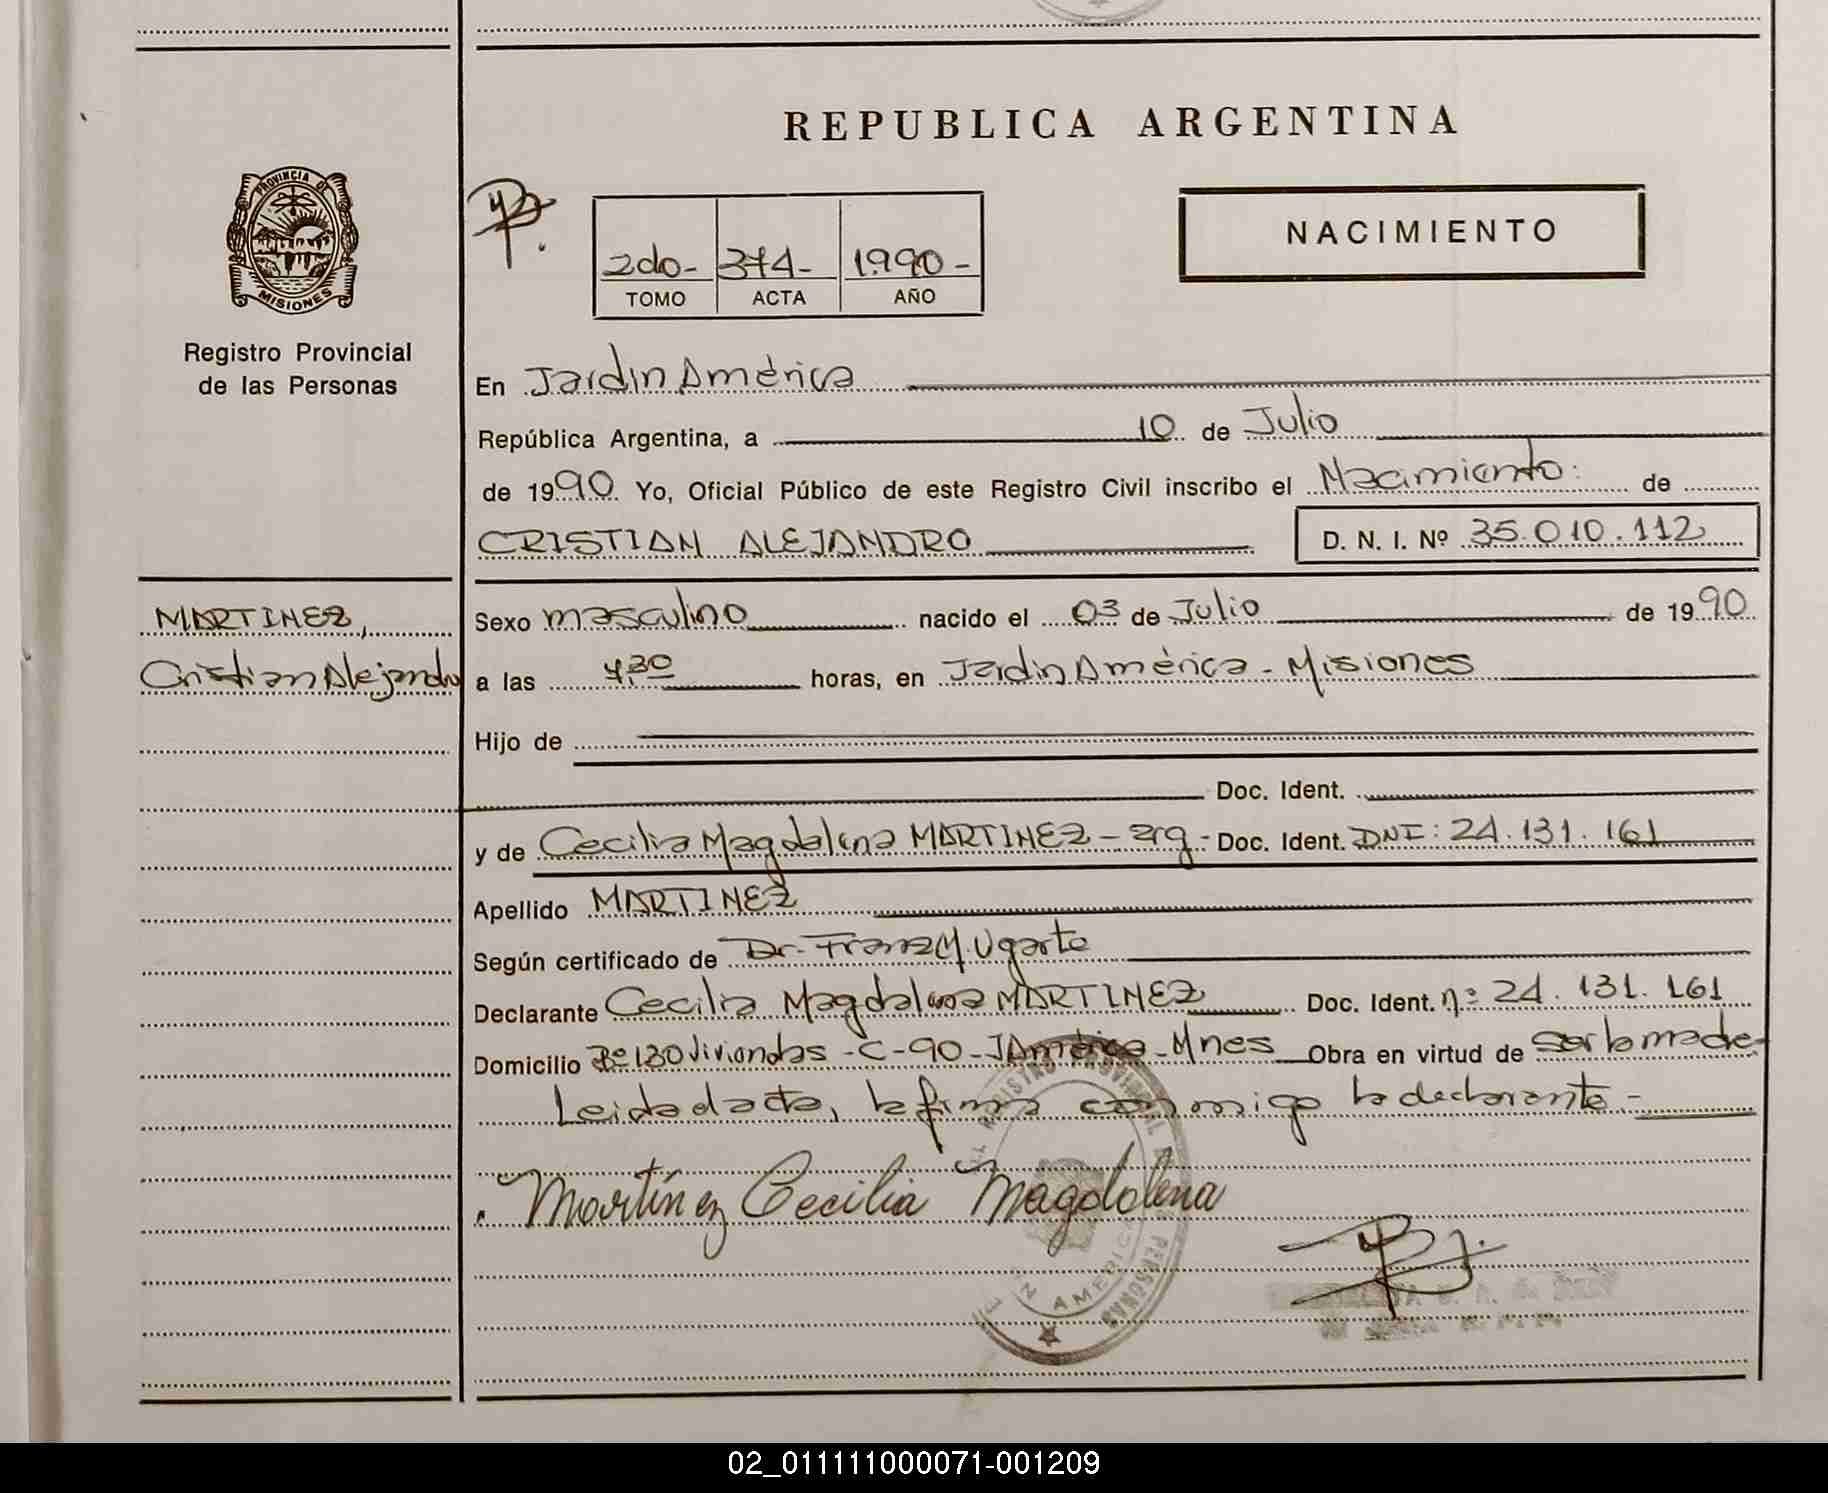 REPUBLICA ARGENTINA
PROVINCIA DE
MISIONES
Registro Provincial
de las Personas
NACIMIENTO
2do- 374- 1990-
TOMO ACTA AÑO
En Jardin América
República Argentina, a 10 de Julio
de 1990 Yo, Oficial Público de este Registro Civil inscribo el Nacimiento: de
CRISTIAN ALEJANDRO D. N. I. Nº 35.010.112
MARTINEZ,
Cristian Alejandro
Sexo masculino nacido el 03 de Julio de 1990
a las 4,30 horas, en Jardin América - Misiones
Hijo de
Doc. Ident.
y de Cecilia Magdalena MARTINEZ - arg - Doc. Ident. DNI: 24.131.161
Apellido MARTINEZ
Según certificado de Dr. Franz M. Ugarte
Declarante Cecilia Magdalena MARTINEZ Doc. Ident. nº 24.131.161
Domicilio Bº 130 Viviendas - C-90 - J América - Mnes Obra en virtud de ser la madre
Leida el acta, la firma conmigo la declarante.-
Martínez Cecilia Magdalena
REGISTRO PROVINCIAL
PERSONAS
AMERICA
02_011111000071-001209